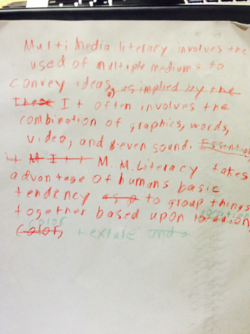 Multi Media literacy involves the
used of multiple mediums to
convey ideas, as implied by the
It often involves the
combination of graphics, words,
video, and even sound. Essential
M. M. Literacy takes
advantage of humans basic
tendency to group things
together based upon location
color, texture and